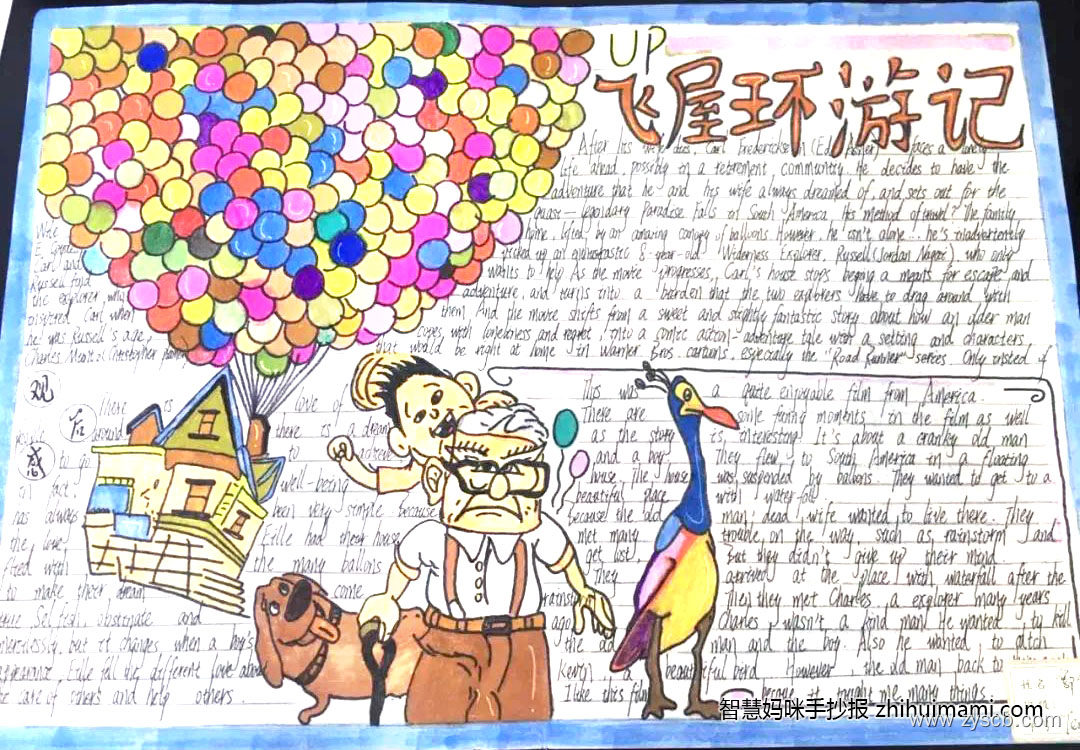 UP
飞屋环游记
After his wife dies, Carl Fredericksen (Ed Asner) faces a lonely
life ahead, possibly in a retirement community. He decides to have the
adventure that he and his wife always dreamed of and sets out for the
quasi-legendary Paradise Falls in South America. His method of travel? The family
home, lifted by an amazing canopy of balloons. However, he isn't alone... he's inadvertently
picked up an enthusiastic 8-year-old Wilderness Explorer, Russell (Jordan Nagai), who only
wants to help. As the movie progresses, Carl's house stops being a means for escape and
adventure, and turns into a burden that the two explorers have to drag around with
them. And the movie shifts from a sweet and slightly fantastic story about how an older man
copes with loneliness and regret, into a comic action-adventure tale with a setting and characters
that would be right at home in Warner Bros. cartoons, especially the "Road Runner" series. Only
Carl and
Russell find
the explorer who
inspired Carl when
he was Russell's age,
Charles Muntz (Christopher
观后感
This was a quite enjoyable film from America.
There are some funny moments in the film as well
as the story is interesting. It's about a cranky old man
and a boy. They flew to South America in a floating
house. The house was suspended by ballons. They wanted to get to a
beautiful place with water-fall
because the old man; dead wife wanted to live there. They
met many trouble on the way, such as rainstorm and
get lost, But they didn't give up their mind.
They arrived at the place with waterfall after the
rainstorm. Then they met Charles, a explorer many years
ago. Charles wasn't a kind man. He wanted to kill
the old man and the boy. Also he wanted to catch
Kevin, a beautiful bird. However, the old man back to
I like this film because it taught me many things.
There is love of
around there is a dream
to go to achieve
in fact, well-being
has always been very simple because
the love, Ellie had their house
the many ballons
to make their dream come
Selfish, obstinate and
mercilessly, but it changes, when a boy's
appearance, Ellie different love
care of others and help others
智慧妈咪手抄报 zhihuimami.com
www.zyscb.com